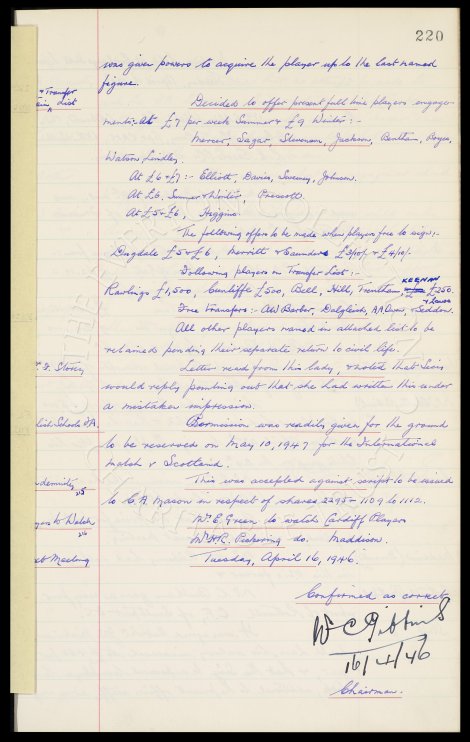 220
was given powers to acquire the player up to the last named
figure.
& Transfer
List
Decided to offer present full time players engage-
ments:- At £7 per week Summer & £9 Winter :-
Mercer, Sagar, Stevenson, Jackson, Bentham, Boyes,
Watson Lindley.
At £6 & £7 :- Elliott, Davies, Sweeney, Johnson.
At £6, Summer & Winter, Prescott.
At £5 & £6, Higgins.
The following offers to be made when players free to sign :-
Dugdale £5 & £6, Merritt & Saunders £3/10/- & £4/10/-.
Following players on Transfer List :-
KEENAN
Rawlings £1,500, Cunliffe £500, Bell, Hill, Trentham, £250.
& Lowe
Free Transfers :- AW Barber, Dalgleish, AA Owen, & Seddon.
All other players named in attached list to be
retained pending their separate return to civil life.
F. Storey
Letter read from this lady, & noted that Secs
would reply pointing out that she had written this under
a mistaken impression.
lish Schools F.A.
Permission was readily given for the ground
to be reserved on May 10, 1947 for the International
match v Scotland.
ndemnity
This was accepted against script to be issued
to C. A. Mason in respect of shares 2295 - 1109 to 1112.
yers to Watch
Mr. E. Green to watch Cardiff Players
Mr. H.R. Pickering do. Maddison.
ext Meeting
Tuesday, April 16, 1946.
Confirmed as correct
W C Gibbins
16/4/46
Chairman.